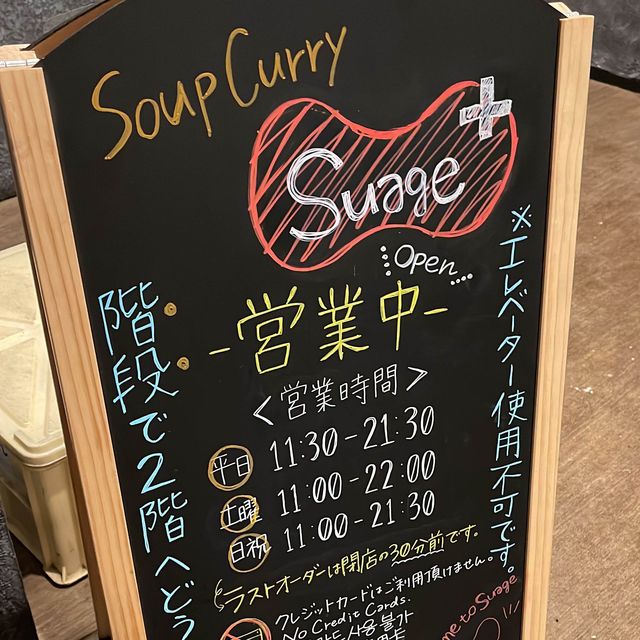 Soup Curry
Suage+
Open
-営業中-
<営業時間>
平日 11:30-21:30
土曜 11:00-22:00
日祝 11:00-21:30
ラストオーダーは閉店の30分前です。
クレジットカードはご利用頂けません。
No Credit Cards.
階段で2階へどう
※エレベーター使用不可です。
to Suage